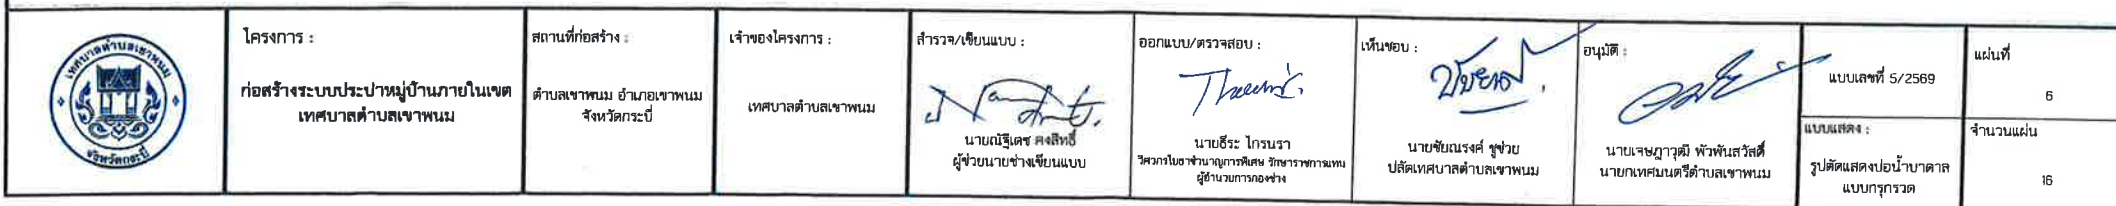 เทศบาลตำบลเขาพนม
จังหวัดกระบี่
โครงการ :
ก่อสร้างระบบประปาหมู่บ้านภายในเขต
เทศบาลตำบลเขาพนม
สถานที่ก่อสร้าง :
ตำบลเขาพนม อำเภอเขาพนม
จังหวัดกระบี่
เจ้าของโครงการ :
เทศบาลตำบลเขาพนม
สำรวจ/เขียนแบบ :
นายณัฐเดช คงสิทธิ์
ผู้ช่วยนายช่างเขียนแบบ
ออกแบบ/ตรวจสอบ :
นายธีระ ไกรนรา
วิศวกรโยธาชำนาญการพิเศษ รักษาราชการแทน
ผู้อำนวยการกองช่าง
เห็นชอบ :
นายชัยณรงค์ ชูช่วย
ปลัดเทศบาลตำบลเขาพนม
อนุมัติ :
นายเจษฎาวุฒิ พัวพันสวัสดิ์
นายกเทศมนตรีตำบลเขาพนม
แบบเลขที่ 5/2569
แบบแสดง :
รูปตัดแสดงบ่อน้ำบาดาล
แบบกรุกรวด
แผ่นที่
6
จำนวนแผ่น
16